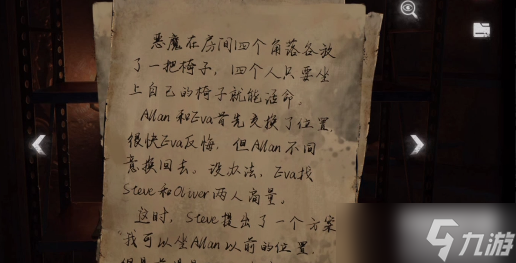 恶魔在房间四个角落各放
了一把椅子，四个人只要坐
上自己的椅子就能活命。
Allan和Eva首先交换了位置，
很快Eva反悔，但Allan不同
意换回去。没办法，Eva找
Steve和Oliver两人商量。
这时，Steve提出了一个方案
"我可以坐Allan以前的位置
九游